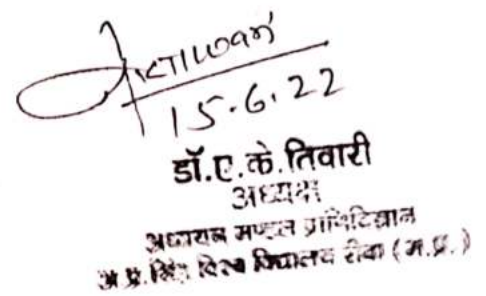 15.6.22
डॉ.ए.के.तिवारी
अध्यक्ष
अध्ययन मण्डल प्राणिविज्ञान
अ.प्र.सिंह विश्व विद्यालय रीवा (म.प्र.)